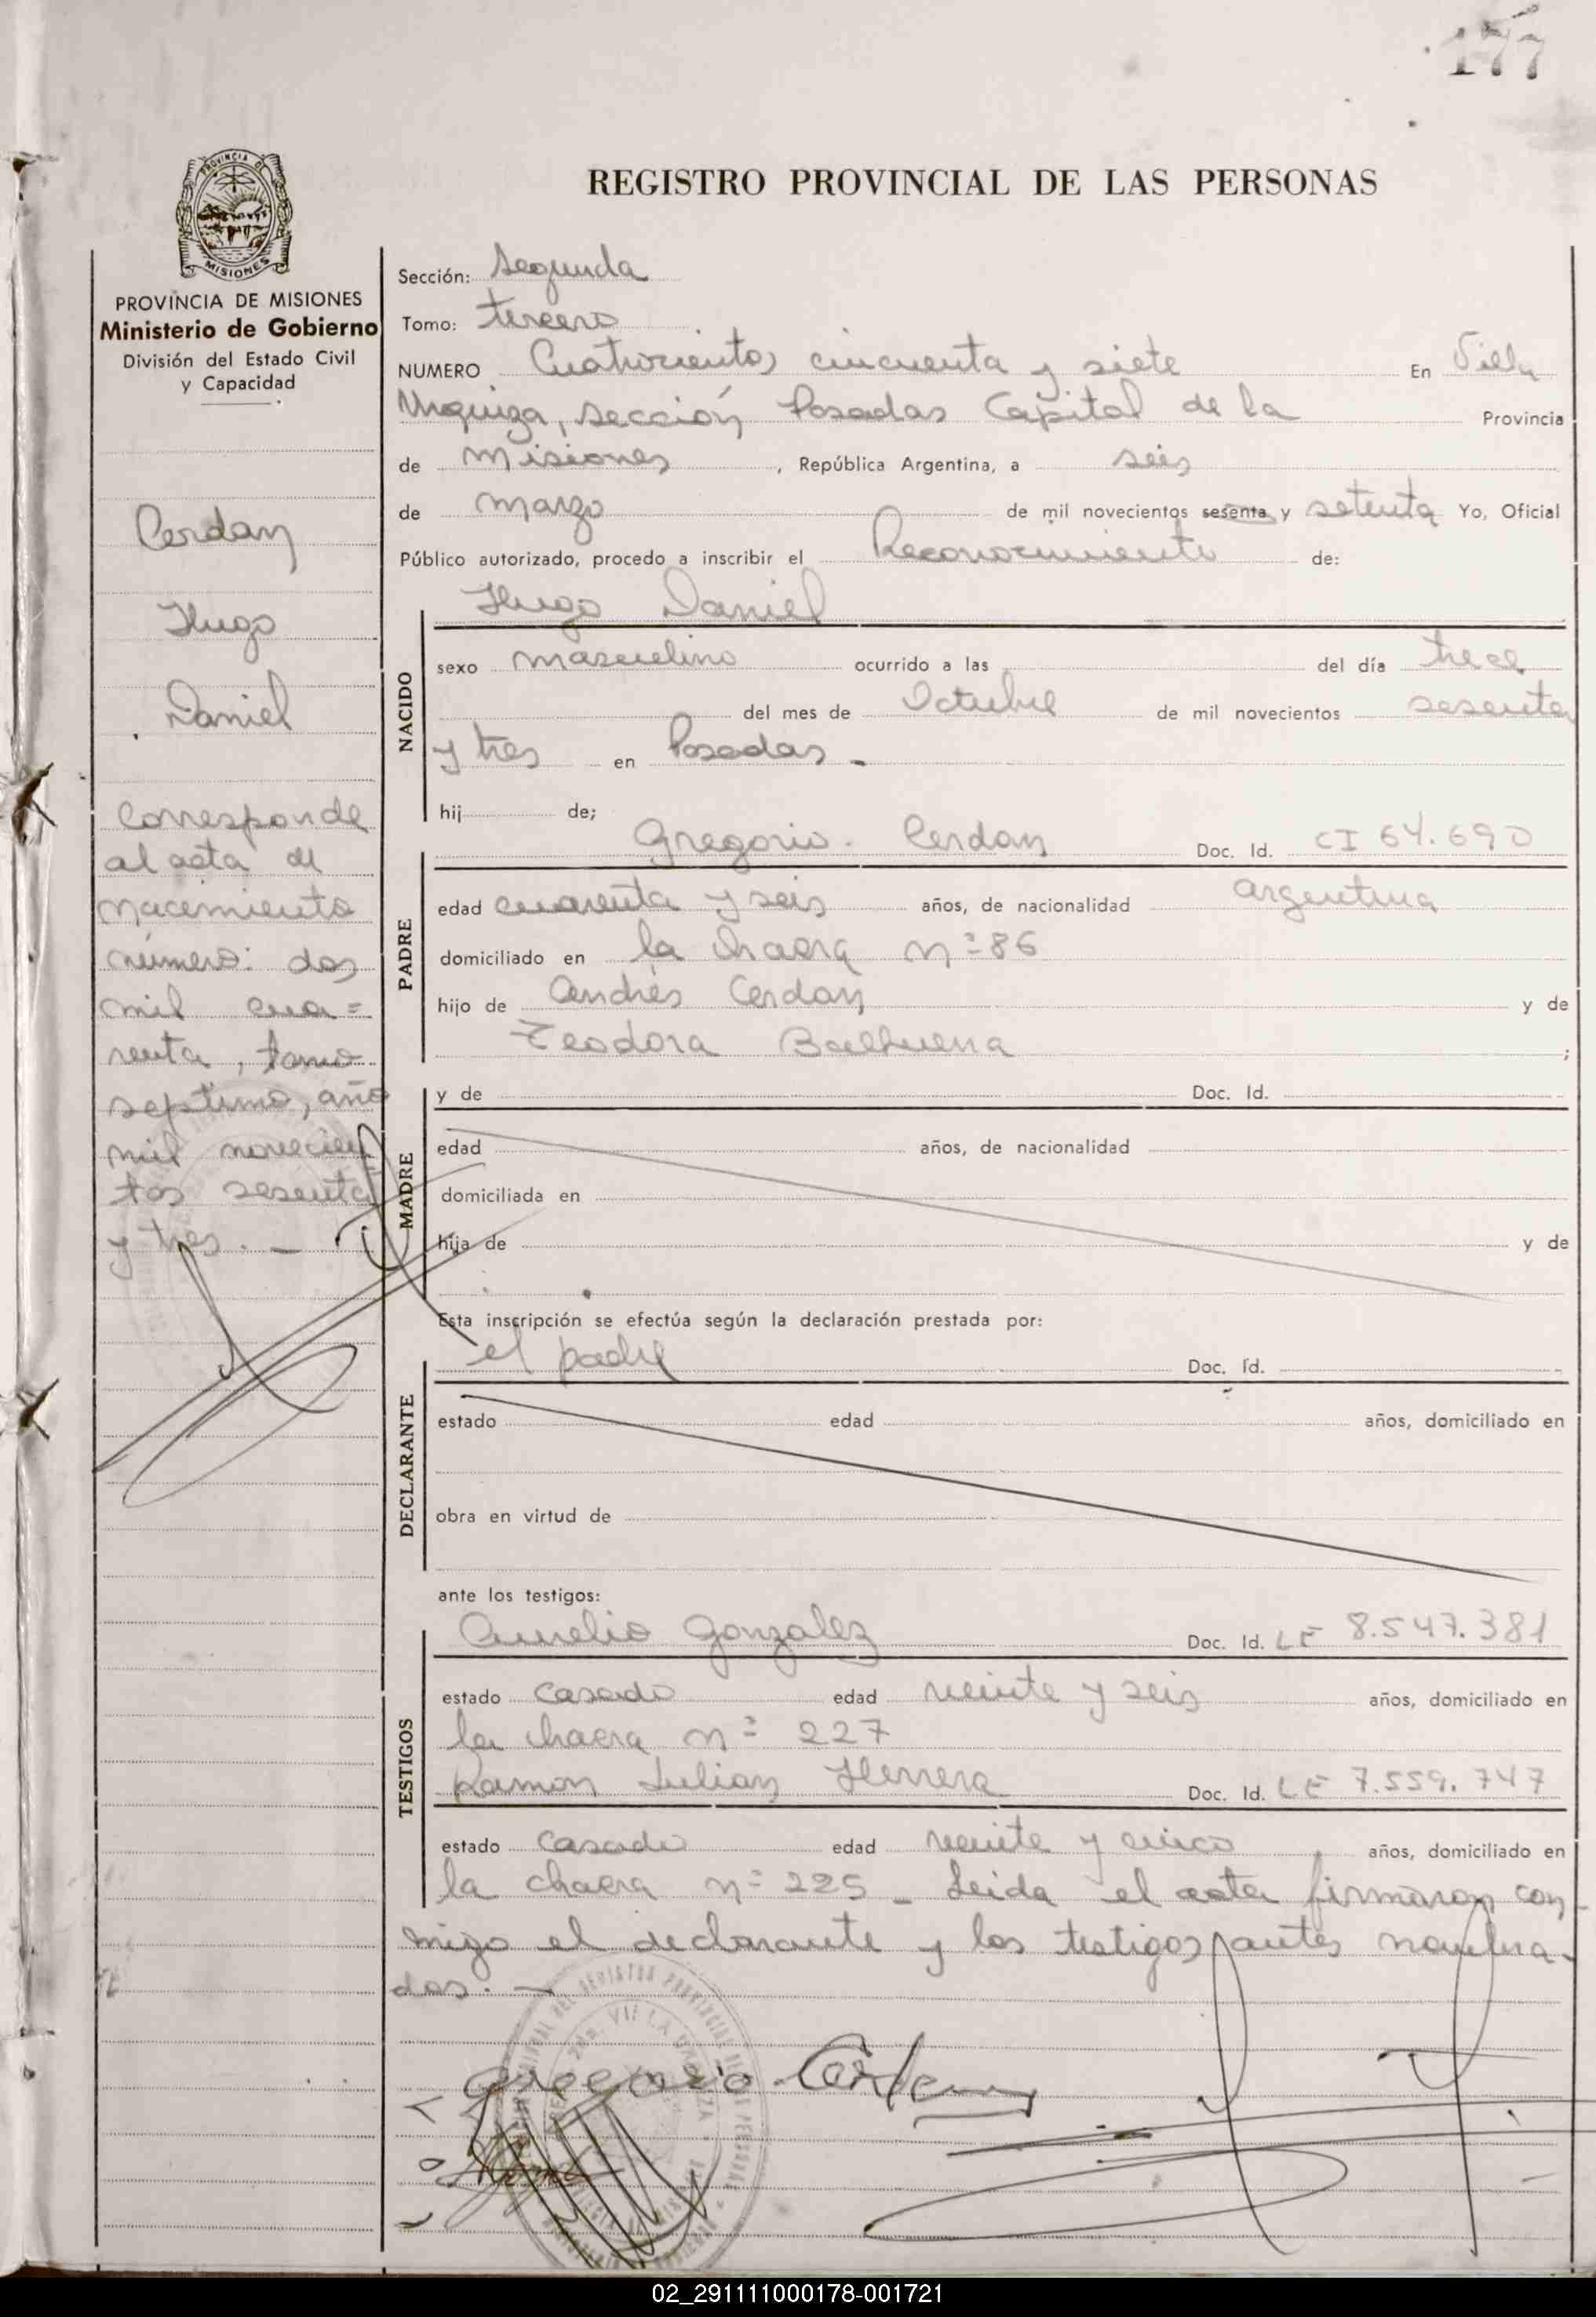 177
PROVINCIA DE
MISIONES
REGISTRO PROVINCIAL DE LAS PERSONAS
PROVINCIA DE MISIONES
Ministerio de Gobierno
División del Estado Civil
y Capacidad
Cerdan
Hugo
Daniel
Corresponde
al acta de
nacimiento
número: dos
mil cua=
renta, tomo
septimo, año
mil novecien
tos sesenta
y tres. -
Sección: Segunda
Tomo: tercero
NUMERO Cuatrocientos cincuenta y siete En Villa
Urquiza, sección Posadas Capital de la Provincia
de Misiones, República Argentina, a seis
de marzo de mil novecientos sesenta y setenta Yo, Oficial
Público autorizado, procedo a inscribir el Reconocimiento de:
Hugo Daniel
NACIDO
sexo masculino ocurrido a las del día trece
del mes de Octubre de mil novecientos sesenta
y tres en Posadas -
hij de;
PADRE
Gregorio Cerdan Doc. Id. CI 64.690
edad cuarenta y seis años, de nacionalidad argentina
domiciliado en la chacra nº 86
hijo de Andrés Cerdan y de
Teodora Balbuena ;
MADRE
y de Doc. Id.
edad años, de nacionalidad
domiciliada en
hija de y de
Esta inscripción se efectúa según la declaración prestada por:
DECLARANTE
el padre Doc. Id.
estado edad años, domiciliado en
obra en virtud de
ante los testigos:
TESTIGOS
Aurelio Gonzalez Doc. Id. LE 8.547.381
estado casado edad veinte y seis años, domiciliado en
la chacra nº 227
Ramon Julian Herrera Doc. Id. LE 7.559.747
estado casado edad veinte y cinco años, domiciliado en
la chacra nº 225 - Leida el acta firmaron con
migo el declarante y los testigos antes nombra-
dos. -
Gregorio Cerdan
02_291111000178-001721